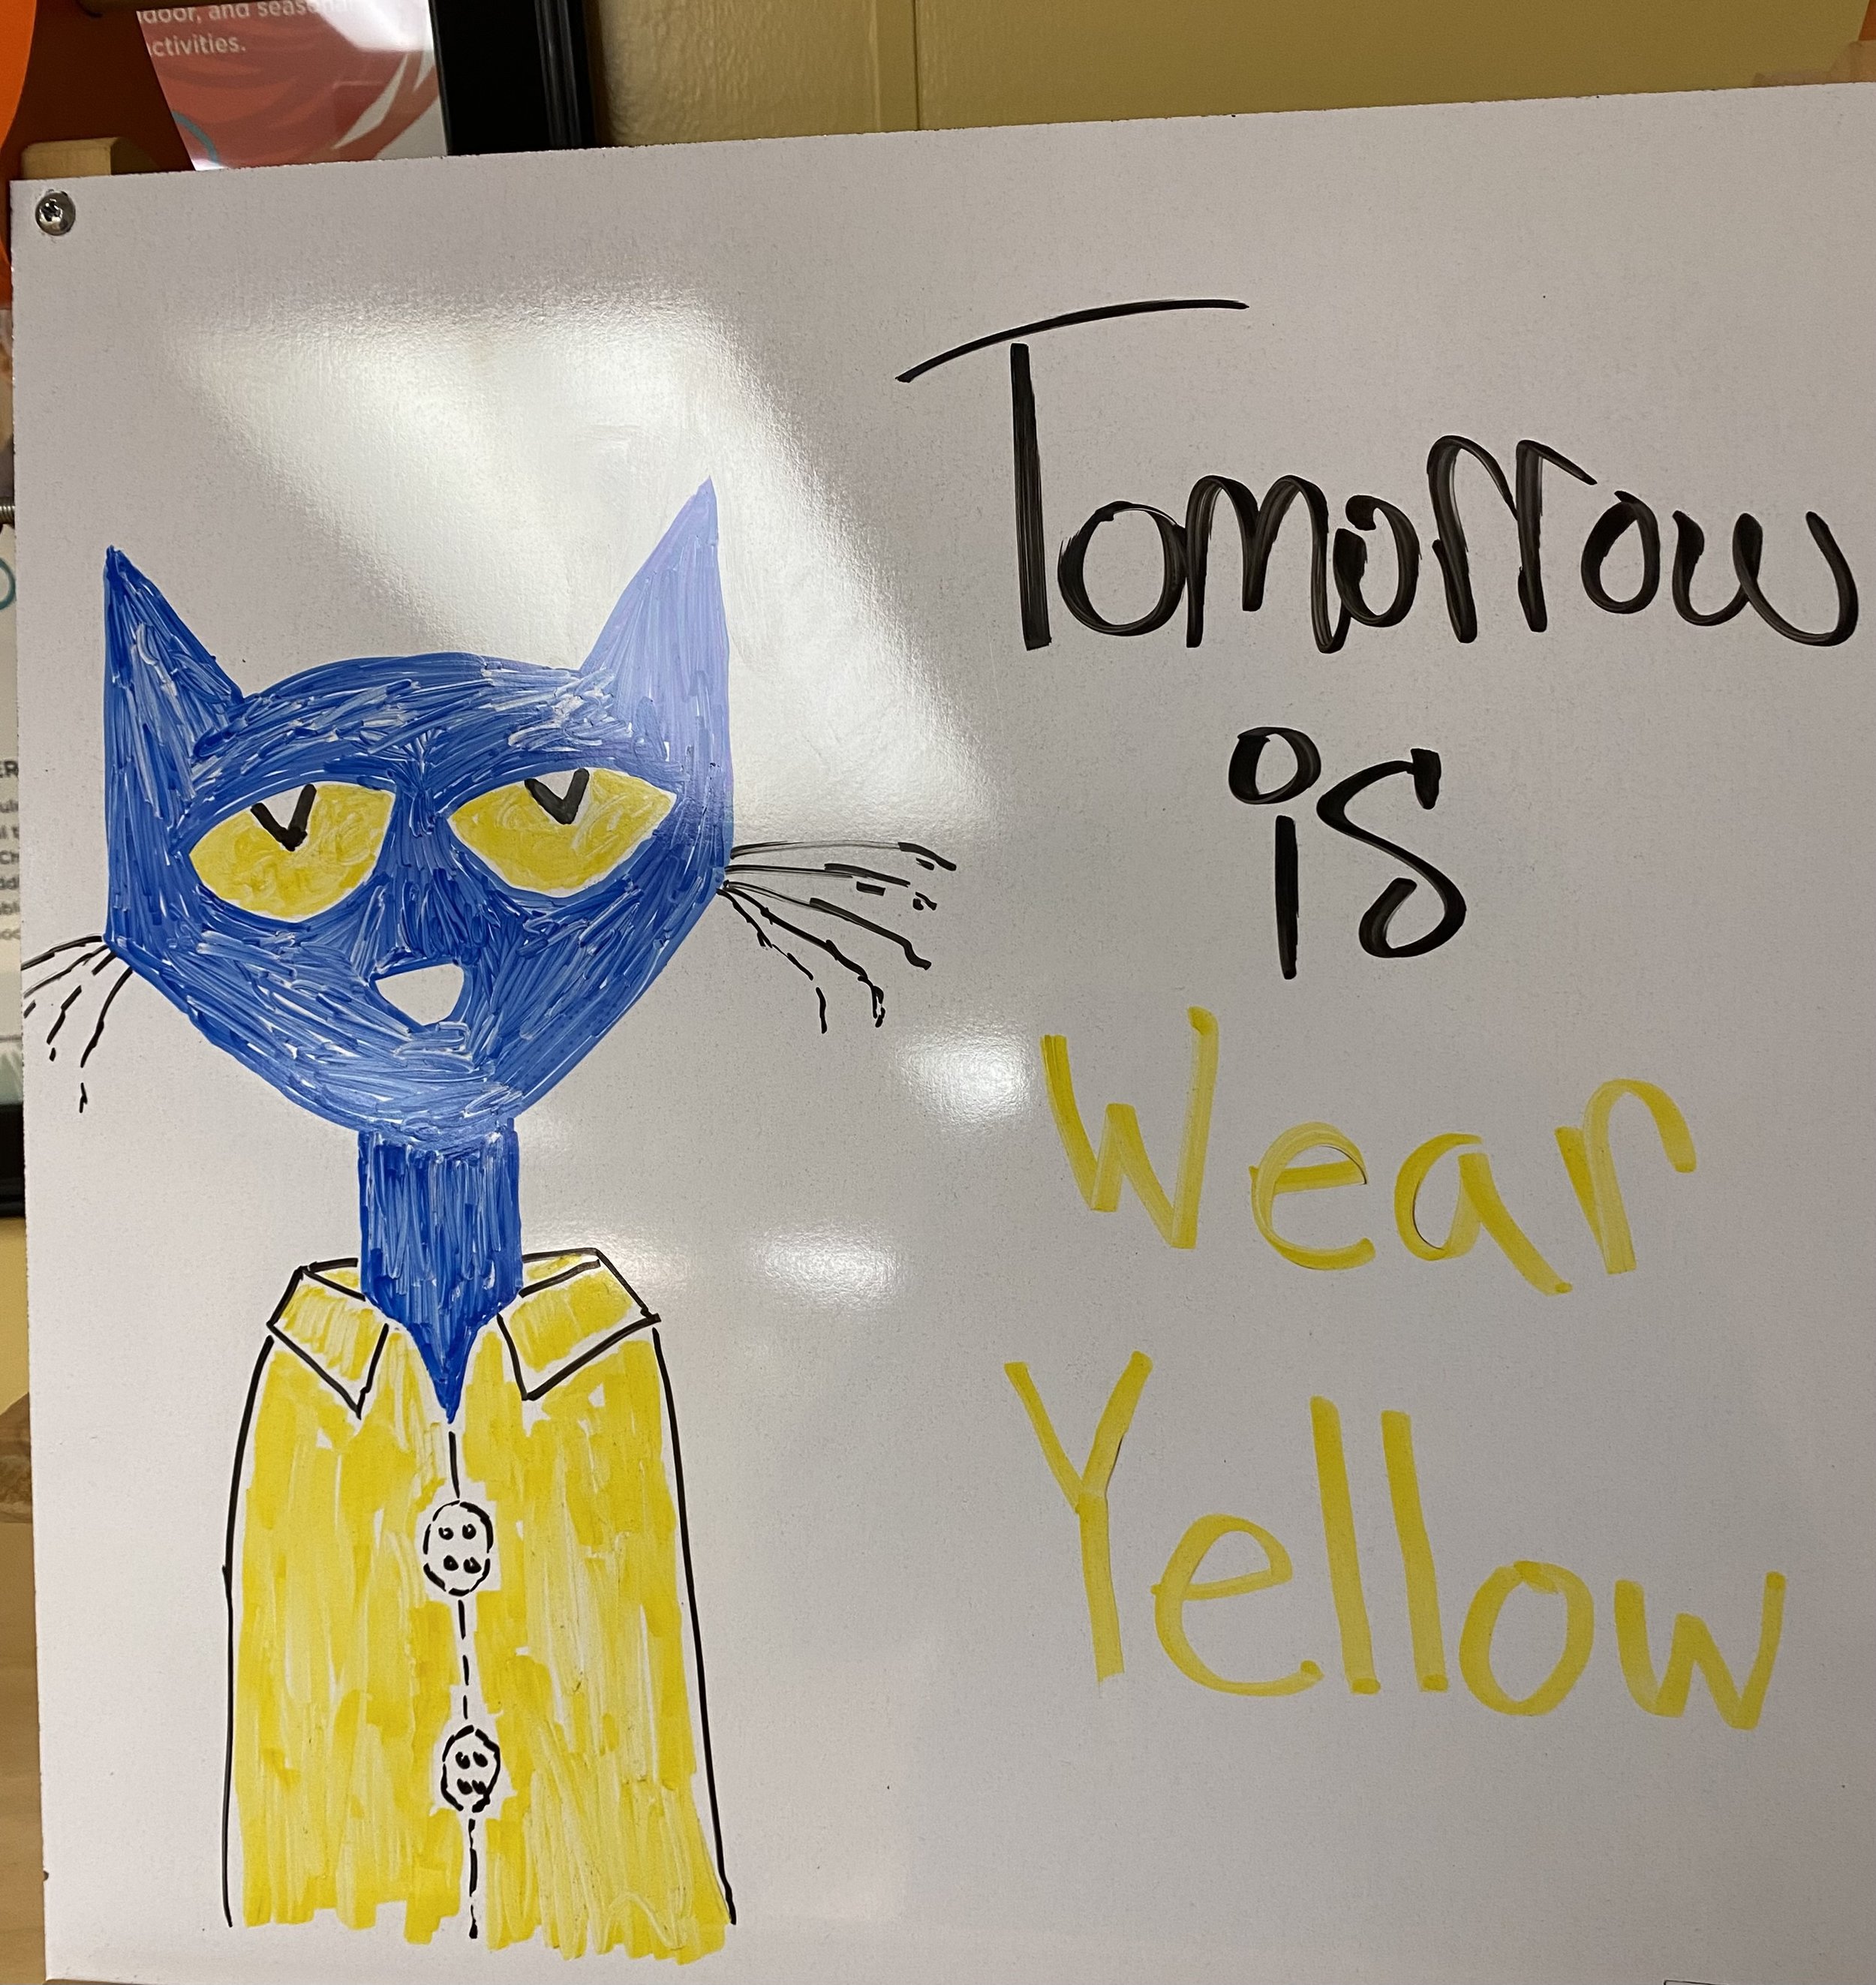 door, and seasonal
activities.
Tomorrow
is
Wear
Yellow